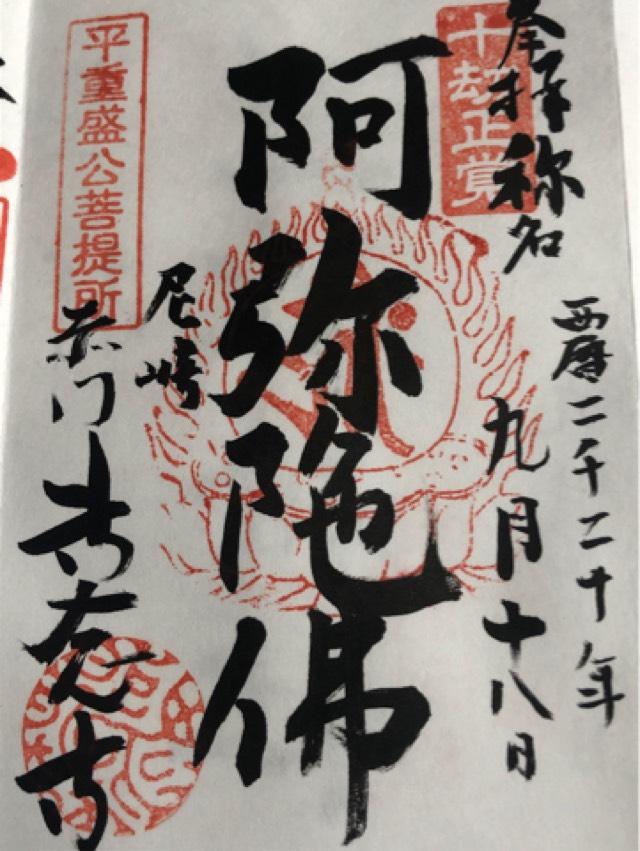 奉拝称名
十劫正覚
西暦二千二十年
九月十八日
阿弥陀佛
平重盛公菩提所
尼崎
赤門専念寺